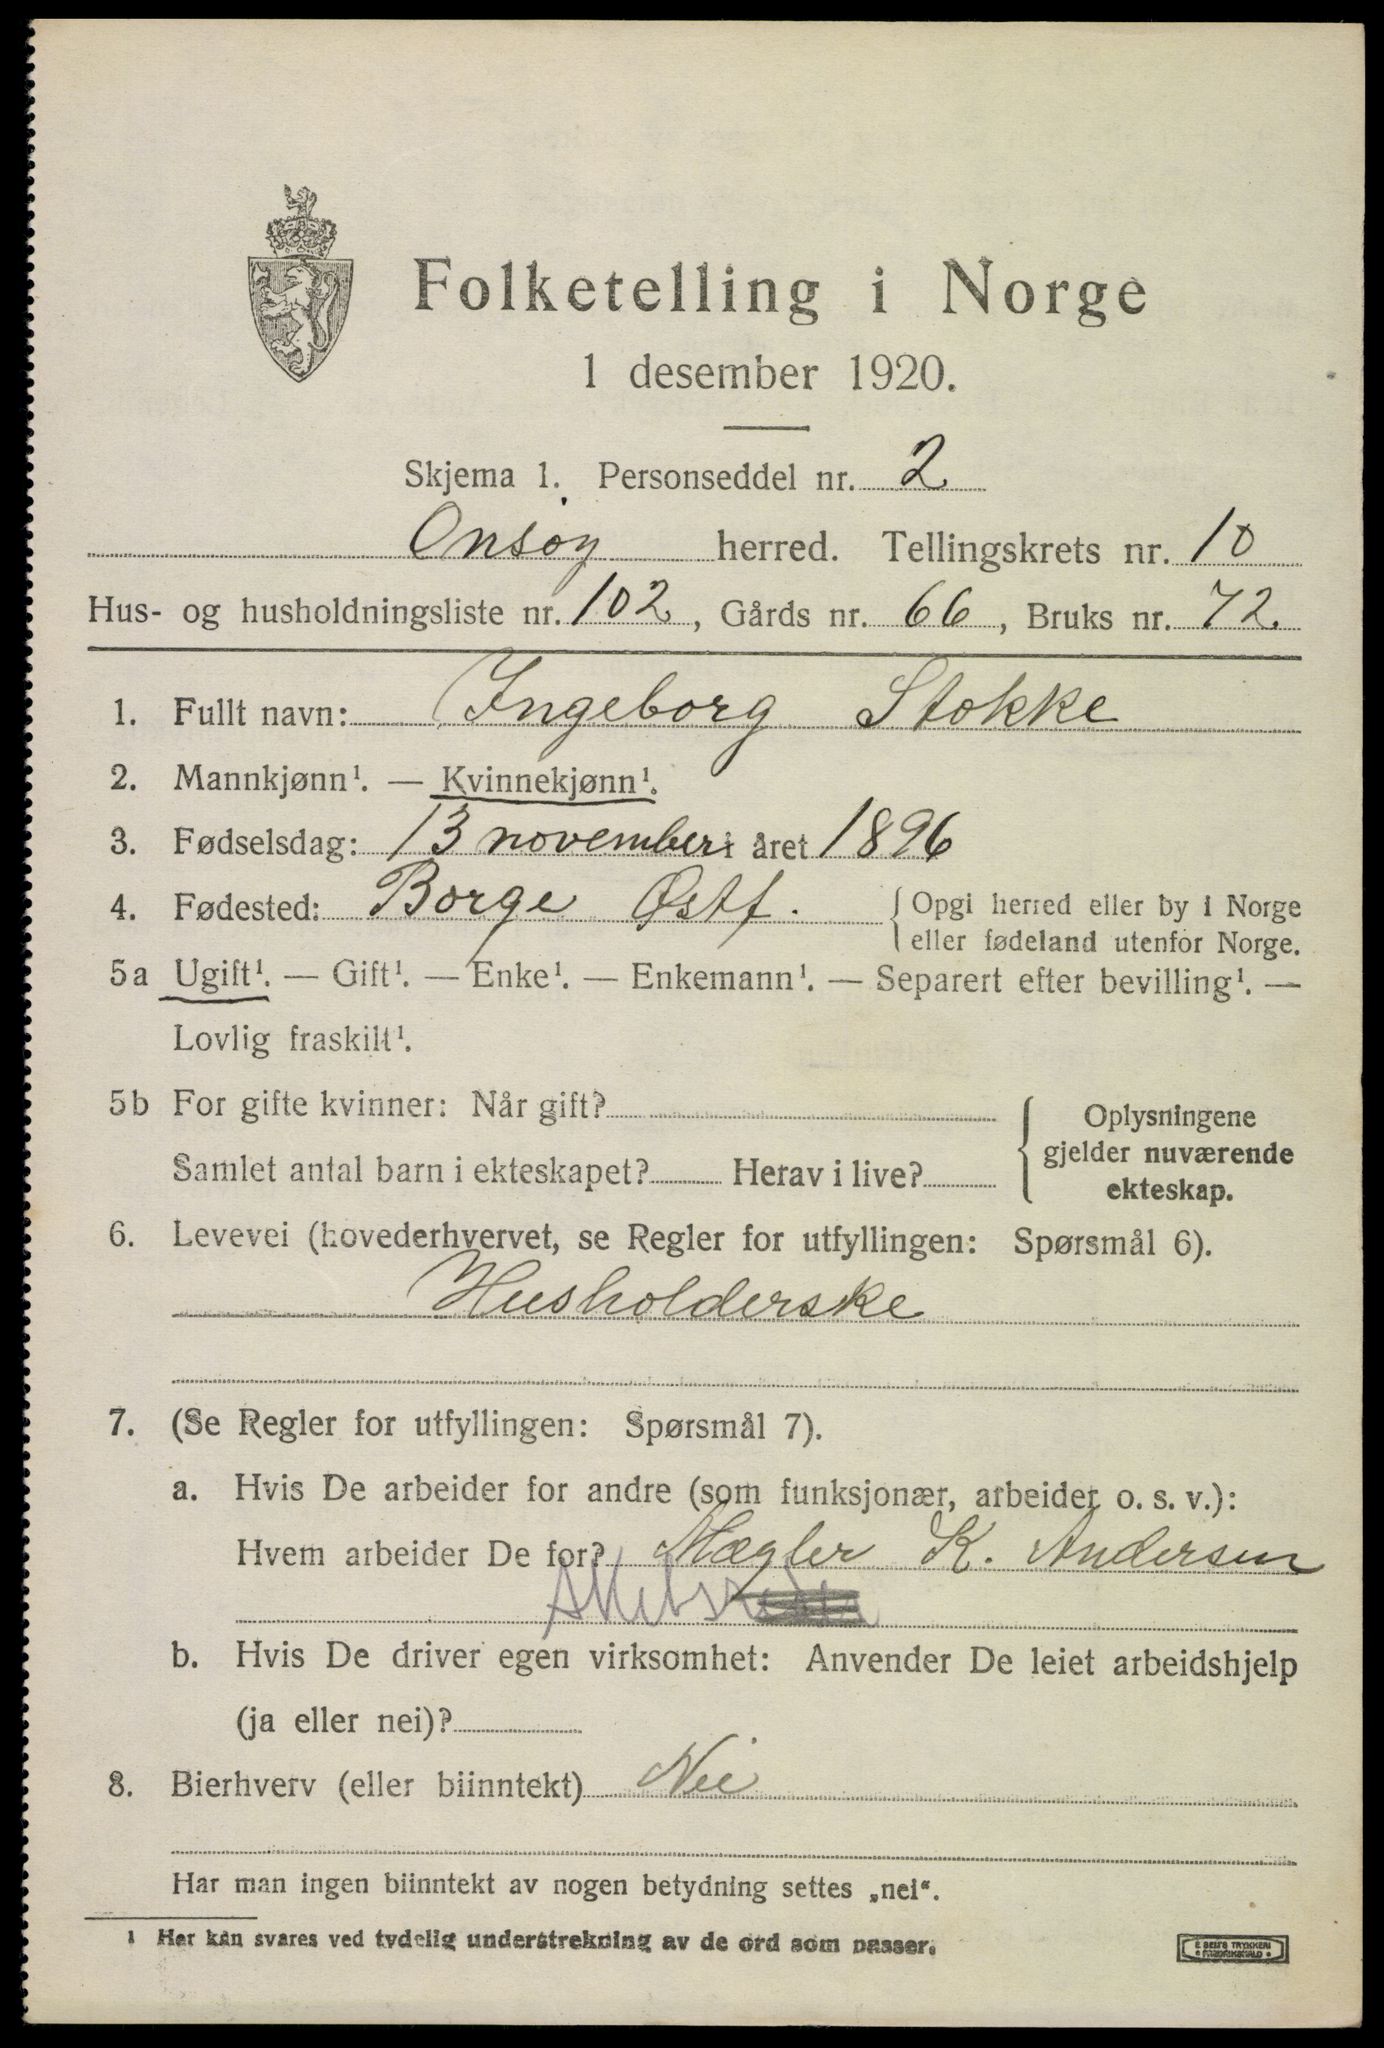 Folketelling i Norge
1 desember 1920.
Skjema 1. Personseddel nr. 2
Onsøy herred. Tellingskrets nr. 10
Hus- og husholdningsliste nr. 102, Gårds nr. 66, Bruks nr. 72
1. Fullt navn: Ingeborg Stokke
2. Mannkjønn¹. — Kvinnekjønn¹.
3. Fødselsdag: 13 november i året 1896
4. Fødested: Borge Østf. { Opgi herred eller by i Norge
eller fødeland utenfor Norge.
5a Ugift¹. — Gift¹. — Enke¹. — Enkemann¹. — Separert efter bevilling¹. —
Lovlig fraskilt¹.
5b For gifte kvinner: Når gift?
Samlet antal barn i ekteskapet? Herav i live?
Oplysningene
gjelder nuværende
ekteskap.
6. Levevei (hovederhvervet, se Regler for utfyllingen: Spørsmål 6).
Husholderske
7. (Se Regler for utfyllingen: Spørsmål 7).
a. Hvis De arbeider for andre (som funksjonær, arbeider o. s. v.):
Hvem arbeider De for? Mægler K. Andersen
b. Hvis De driver egen virksomhet: Anvender De leiet arbeidshjelp
(ja eller nei)?
8. Bierhverv (eller biinntekt) Nei
Har man ingen biinntekt av nogen betydning settes „nei“.
1 Her kan svares ved tydelig understrekning av de ord som passer.